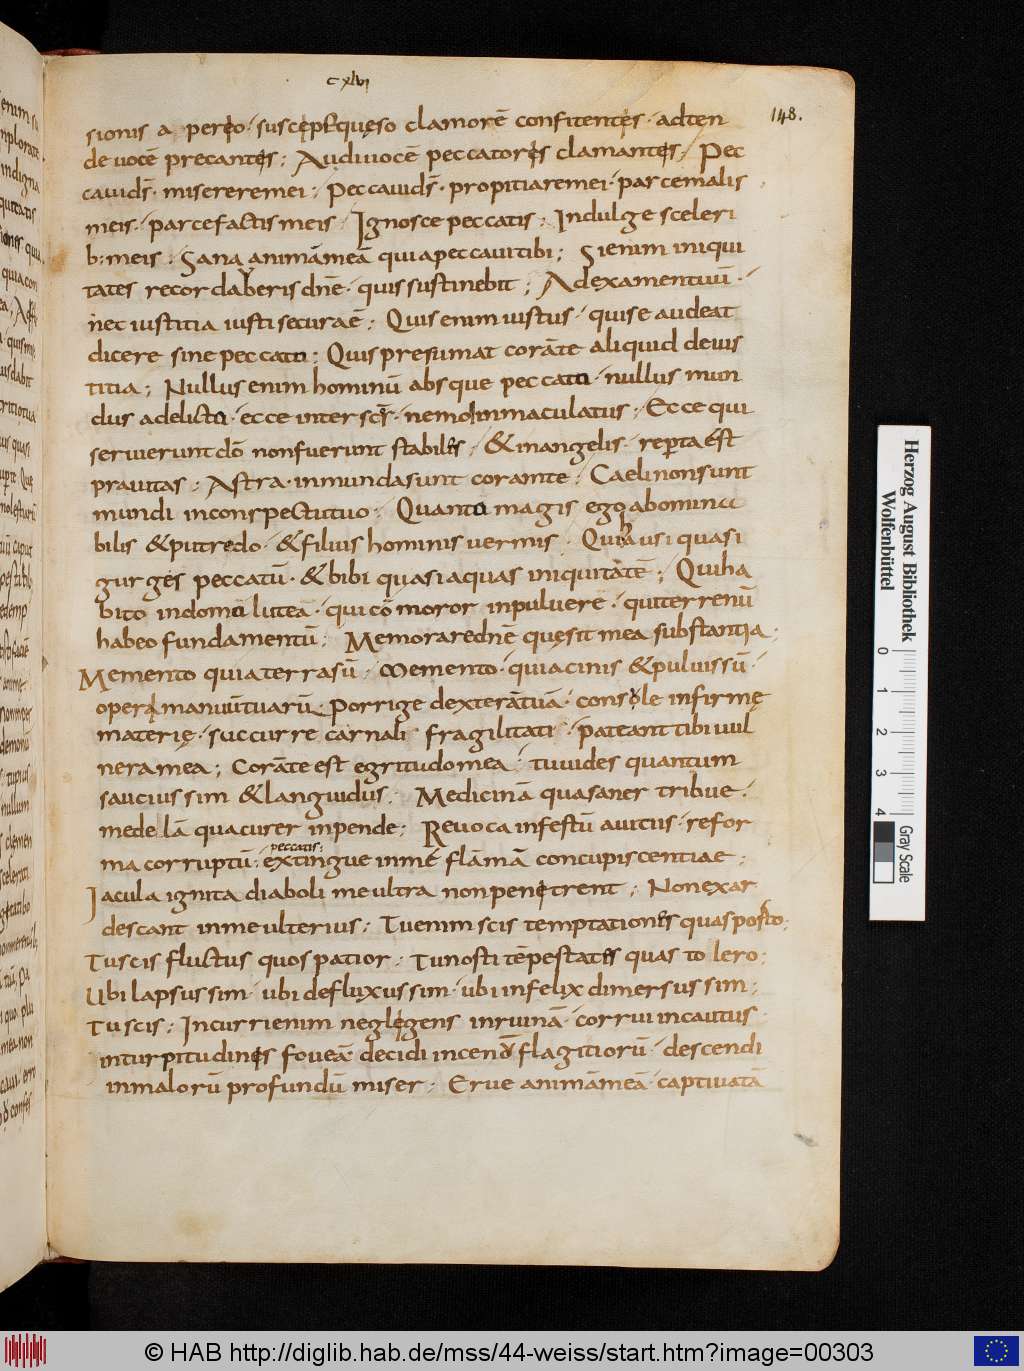 cxlvi
148.
sionis aperio · suscepe quęso clamorē confitentis · adten
de uocē precantis ; Audi uocē peccatoris clamantis ; Pec
caui dš · miserere mei ; Peccaui dš · propitiare mei · parce malis
meis · parce factis meis · Ignosce peccatis ; Indulge sceleri
b: meis ; Sana animā meā quia peccaui tibi ; Si enim iniqui
tates recordaberis dnē · quis sustinebit ; Ad examen tuū ·
nec iustitia iusti secura ē ; Quis enim iustus · qui se audeat
dicere sine peccato ; Quis presumat corā te aliquid de ius
titia ; Nullus enim hominū absque peccato · nullus mun
dus a delicto · ecce inter scs · nemo inmaculatus ; Ecce qui
seruierunt dō non fuerunt stabiles ; & in angelis reperta est
prauitas ; Astra inmunda sunt coram te ; Caeli non sunt
mundi in conspectu tuo ; Quanto magis ego abomina
bilis & putredo · & filius hominis uermis · Qui hausi quasi
gurges peccatū · & bibi quasi aquas iniquitatē ; Qui ha
bito in domo luteā · qui cōmoror in puluere · qui terrenū
habeo fundamentū ; Memorare dnē quę sit mea substantia ;
Memento quia terra sū ; Memento · quia cinis & puluis sū ·
operi manuū tuarū · porrige dexterā tuā · consule infirmę
materię · succurre carnali fragilitati · pateant tibi uul
nera mea ; Corā te est egritudo mea ; tu uides quantum
saucius sim & languidus ; Medicinā qua saner tribue ·
medelā qua curer inpende ; Reuoca infestū auitus · refor
peccatis ;
ma corruptū · extingue in me flāmā concupiscentiae ;
Iacula ignita diaboli me ultra non penetrent ; Non exar
descant in me ulterius ; Tu enim scis temptationes quas porto ;
Tu scis fluctus quos patior ; Tu nosti tēpestates quas tolero ;
Ubi lapsus sim · ubi defluxus sim · ubi infelix dimersus sim ;
Tu scis ; Incurri enim neglegens in ruinā · corrui incautus
in turpitudinis foueā decidi flagitiorū · descendi
in malorū profundū miser ; Erue animā meā captiuatā
Herzog August Bibliothek
Wolfenbüttel
0 1 2 3 4
Gray Scale
© HAB http://diglib.hab.de/mss/44-weiss/start.htm?image=00303